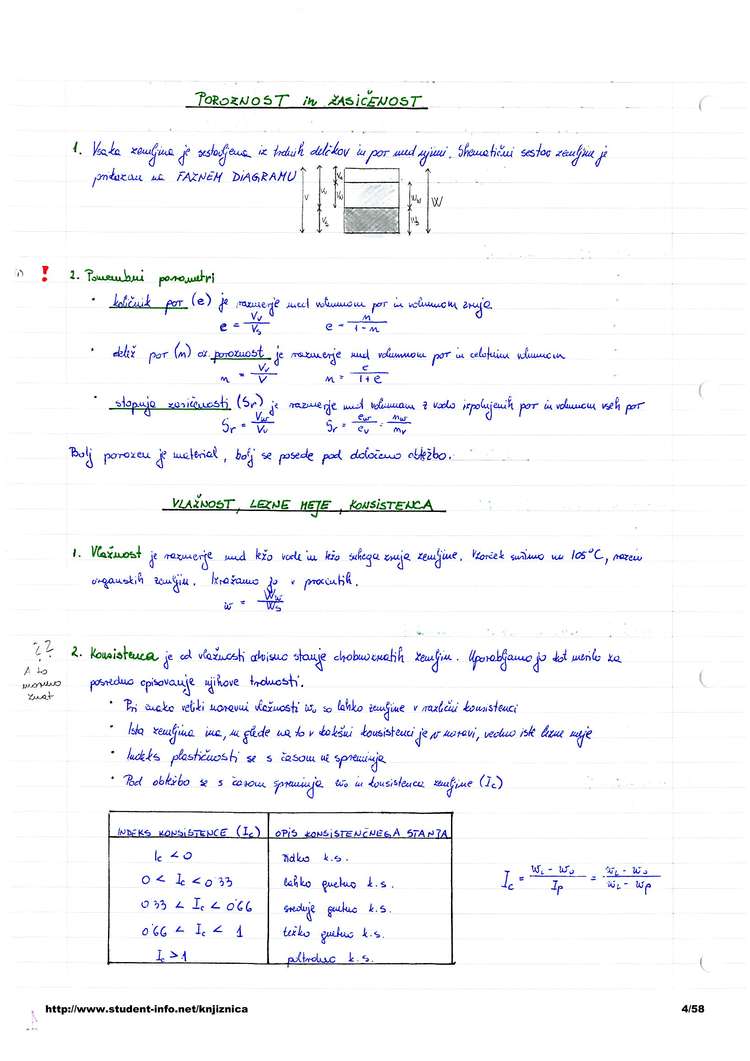 POROZNOST in ZASIČENOST
1. Vsaka zemljina je sestavljena iz trdnih delčkov in por med njimi. Shematični sestav zemljine je
prikazan na FAZNEM DIAGRAMU
V Vv Vs Va Vw Ww Ws W
! 2. Pomembni parametri
• količnik por (e) je razmerje med volumnom por in volumnom zrnja
e = Vv/Vs e = n/1-n
• delež por (n) oz. poroznost je razmerje med volumnom por in celotnim volumnom
n = Vv/V n = e/1+e
• stopnja zasičenosti (Sr) je razmerje med volumnom z vodo izpolnjenih por in volumnom vseh por
Sr = Vw/Vv Sr = ew/ev = nw/nv
Bolj porozen je material, bolj se posede pod določeno obtežbo.
VLAŽNOST, LEZNE MEJE, KONSISTENCA
1. Vlažnost je razmerje med težo vode in težo suhega zrnja zemljine. Vzorček sušimo na 105°C, razen
organskih zemljin. Izražamo jo v procentih.
w = Ww/Ws
?? A to moramo znat
2. Konsistenca je od vlažnosti odvisno stanje drobnozrnatih zemljin. Uporabljamo jo kot merilo za
posredno opisovanje njihove trdnosti.
• Pri enako veliki naravni vlažnosti w₀ so lahko zemljine v različni konsistenci
• Ista zemljina ima, ne glede na to v kakšni konsistenci je v naravi, vedno iste lezne meje
• Indeks plastičnosti se s časom ne spreminja
• Pod obtežbo se s časom spreminja w₀ in konsistenca zemljine (Ic)
INDEKS KONSISTENCE (Ic) OPIS KONSISTENČNEGA STANJA
Ic < 0 židko k.s.
0 < Ic < 0'33 lahko gnetno k.s.
0'33 < Ic < 0'66 srednje gnetno k.s.
0'66 < Ic < 1 težko gnetno k.s.
Ic > 1 poltrdno k.s.
Ic = wL - w₀/Ip = wL - w₀/wL - wP
http://www.student-info.net/knjiznica 4/58